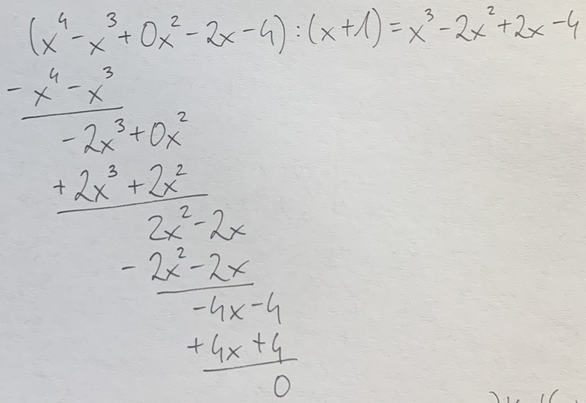 (x⁴ - x³ + 0x² - 2x - 4) : (x + 1) = x³ - 2x² + 2x - 4
- x⁴ - x³
- 2x³ + 0x²
+ 2x³ + 2x²
2x² - 2x
- 2x² - 2x
- 4x - 4
+ 4x + 4
0